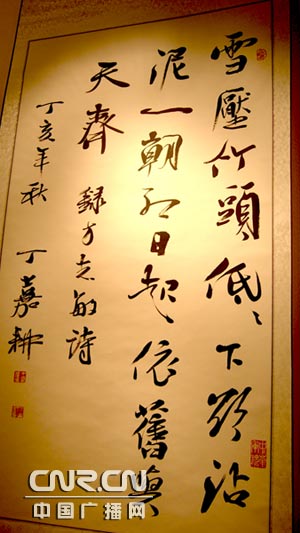 雪壓竹頭低〻下欲沾
泥一朝紅日起依舊與
天齊 錄方志敏詩
丁亥年秋 丁嘉耕
CNR.CN
中国广播网